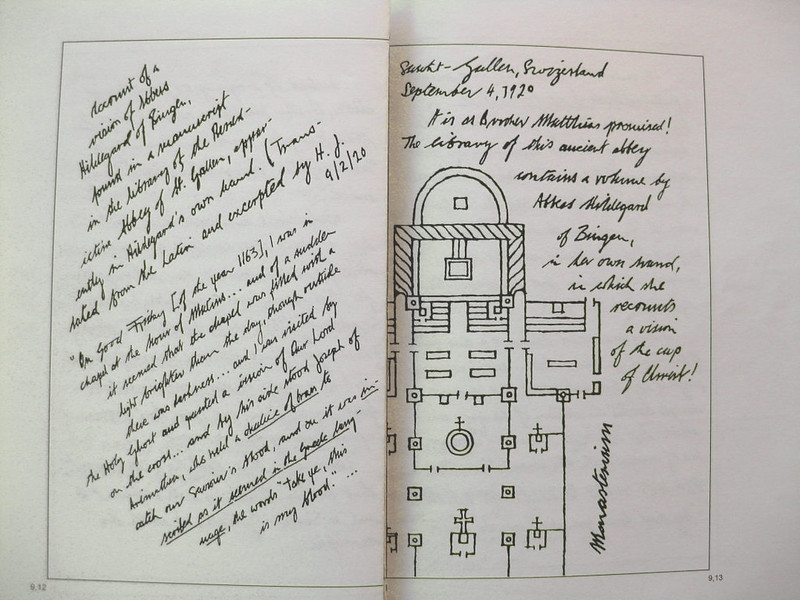 Account of a
vision of Abbess
Hildegard of Bingen,
found in a manuscript
in the library of the Bened-
ictine Abbey of St. Gallen, appar-
ently in Hildegard's own hand. (Trans-
lated from the Latin and excerpted by H. J.
9/2/20
"On Good Friday [of the year 1163], I was in
chapel at the hour of Matins... and of a sudden
it seemed that the chapel was filled with a
light brighter than the day, though outside
there was darkness... and I was visited by
the Holy Ghost and granted a vision of Our Lord
on the cross... and by his side stood Joseph of
Arimathea, who held a chalice of brass to
catch our Saviour's blood, and on it was in-
scribed as it seemed in the Greek lang-
uage, the words "Take ye, this
is my blood." ...
9,12
Sankt-Gallen, Switzerland
September 4, 1920
It is as Brother Matthius promised!
The library of this ancient abbey
contains a volume by
Abbess Hildegard
of Bingen,
in her own hand,
in which she
recounts
a vision
of the cup
of Christ!
Monasterium
9,13